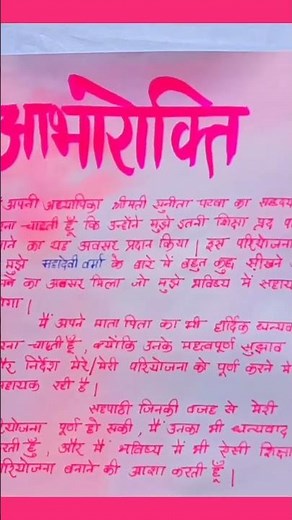 आभारोक्ति
अपनी अध्यापिका श्रीमती सुनीता का
चाहती हूँ कि उन्होंने मुझे इतनी शिक्षा प्रद
का यह अवसर प्रदान किया | इस परियोजना
मुझे महादेवी वर्मा के बारे में बहुत कुछ सीखने
का अवसर मिला जो मुझे भविष्य में सहाय
|
मैं अपने माता पिता का भी हार्दिक धन्यव
चाहती हूँ , क्योंकि उनके महत्वपूर्ण सुझाव
निर्देश मेरे/मेरी परियोजना को पूर्ण करने मे
रही है |
सहपाठी जिनकी वजह से मेरी
पूर्ण हो सकी , मैं उनका भी धन्यवाद
हूँ , और मैं भविष्य में भी ऐसी शिक्षा
बनाने की आशा करती हूँ |